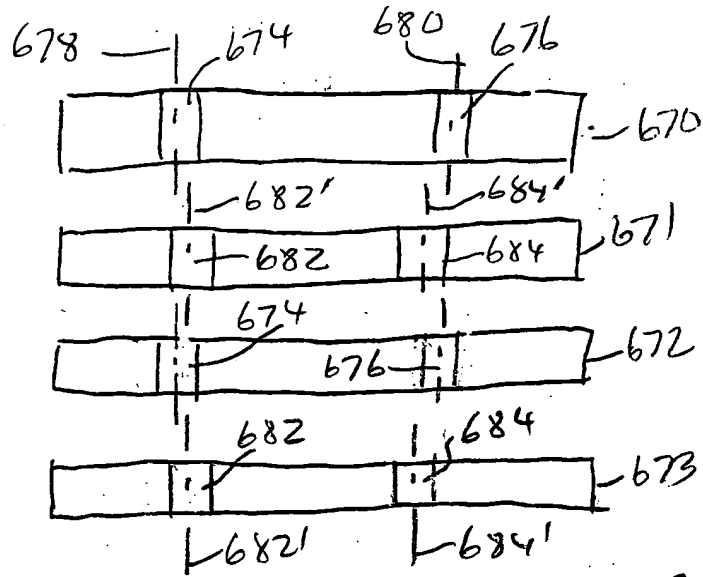 678 674 680 676
670
682' 684'
671
682 684
674
672
676
682 684
673
682' 684'